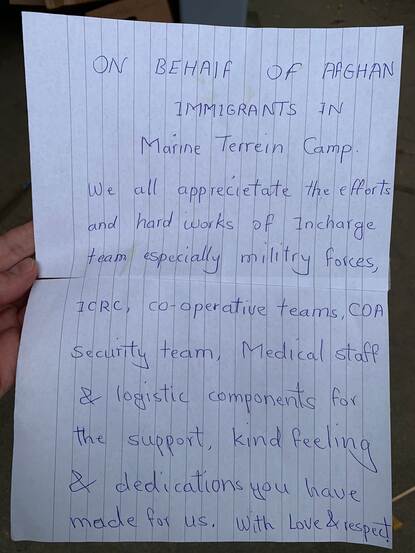 ON BEHAlF OF AFGHAN
IMMIGRANTS IN
Marine Terrein Camp.
We all apprecietate the efforts
and hard works of Incharge
team especially militry forces,
ICRC, co-operative teams, COA
Security team, Medical staff
& logistic components for
the support, kind feeling
& dedications you have
made for us. With Love & respect!